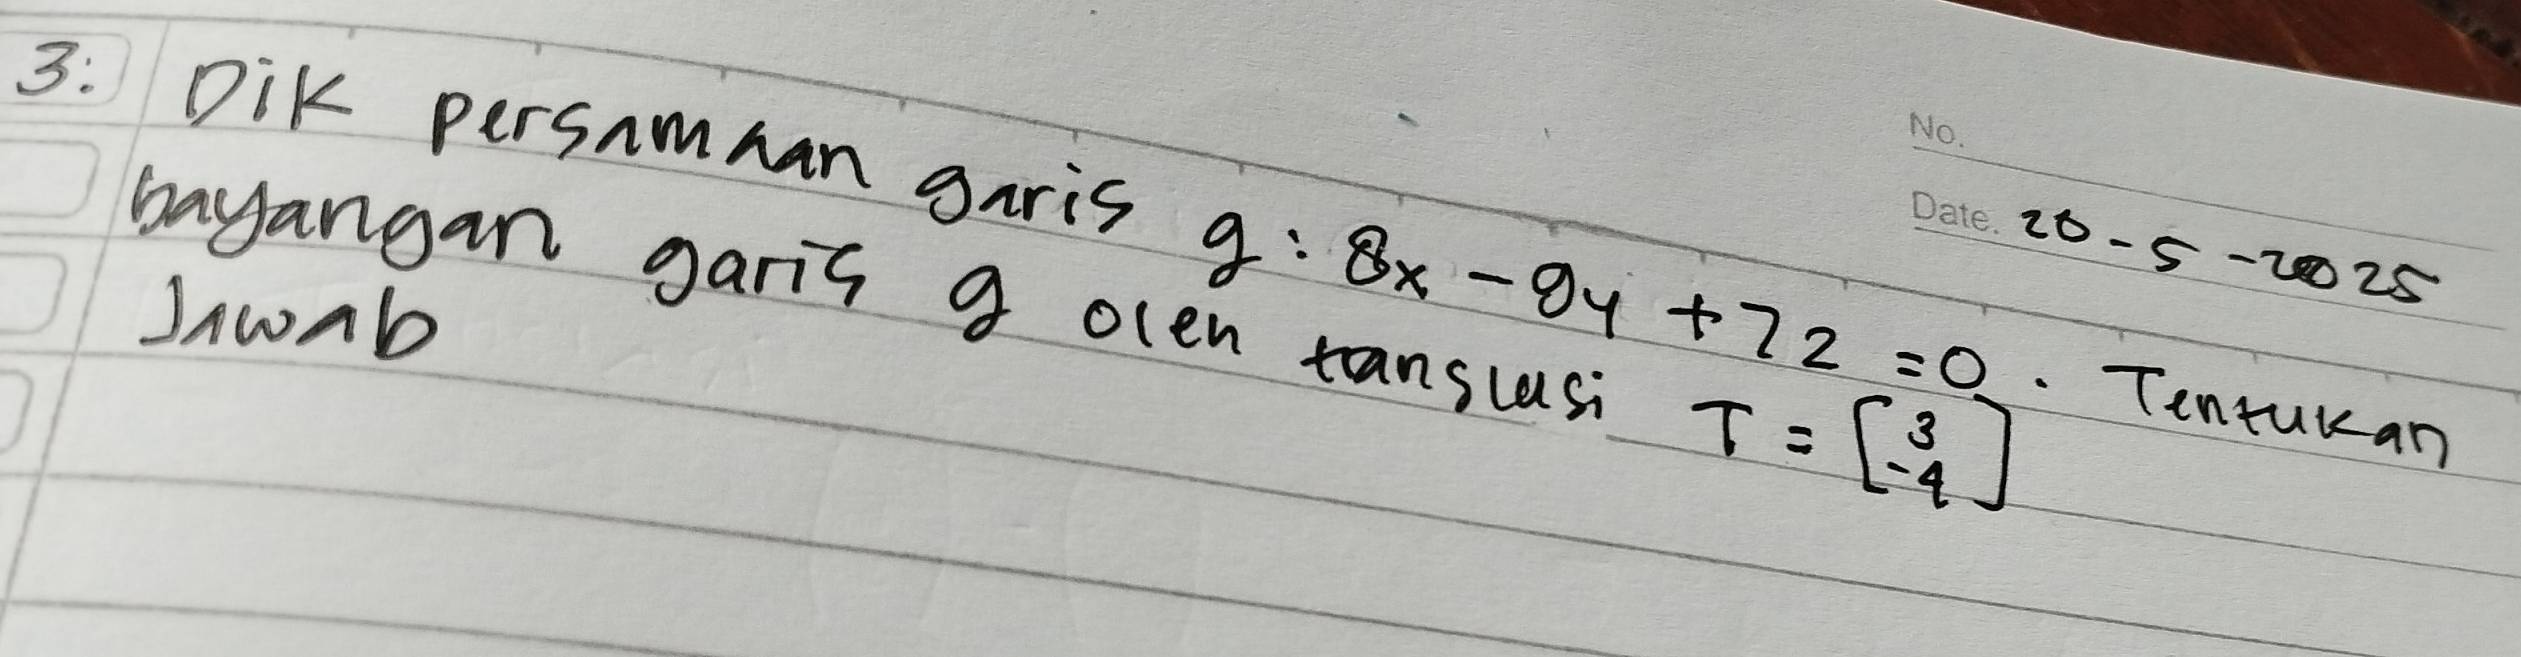 No.
Date. 20-5-2025
3. Dik persamaan garis g : 8x - 9y + 72 = 0. Tentukan
bayangan garis g oleh translasi T = [3 -4]
Jawab